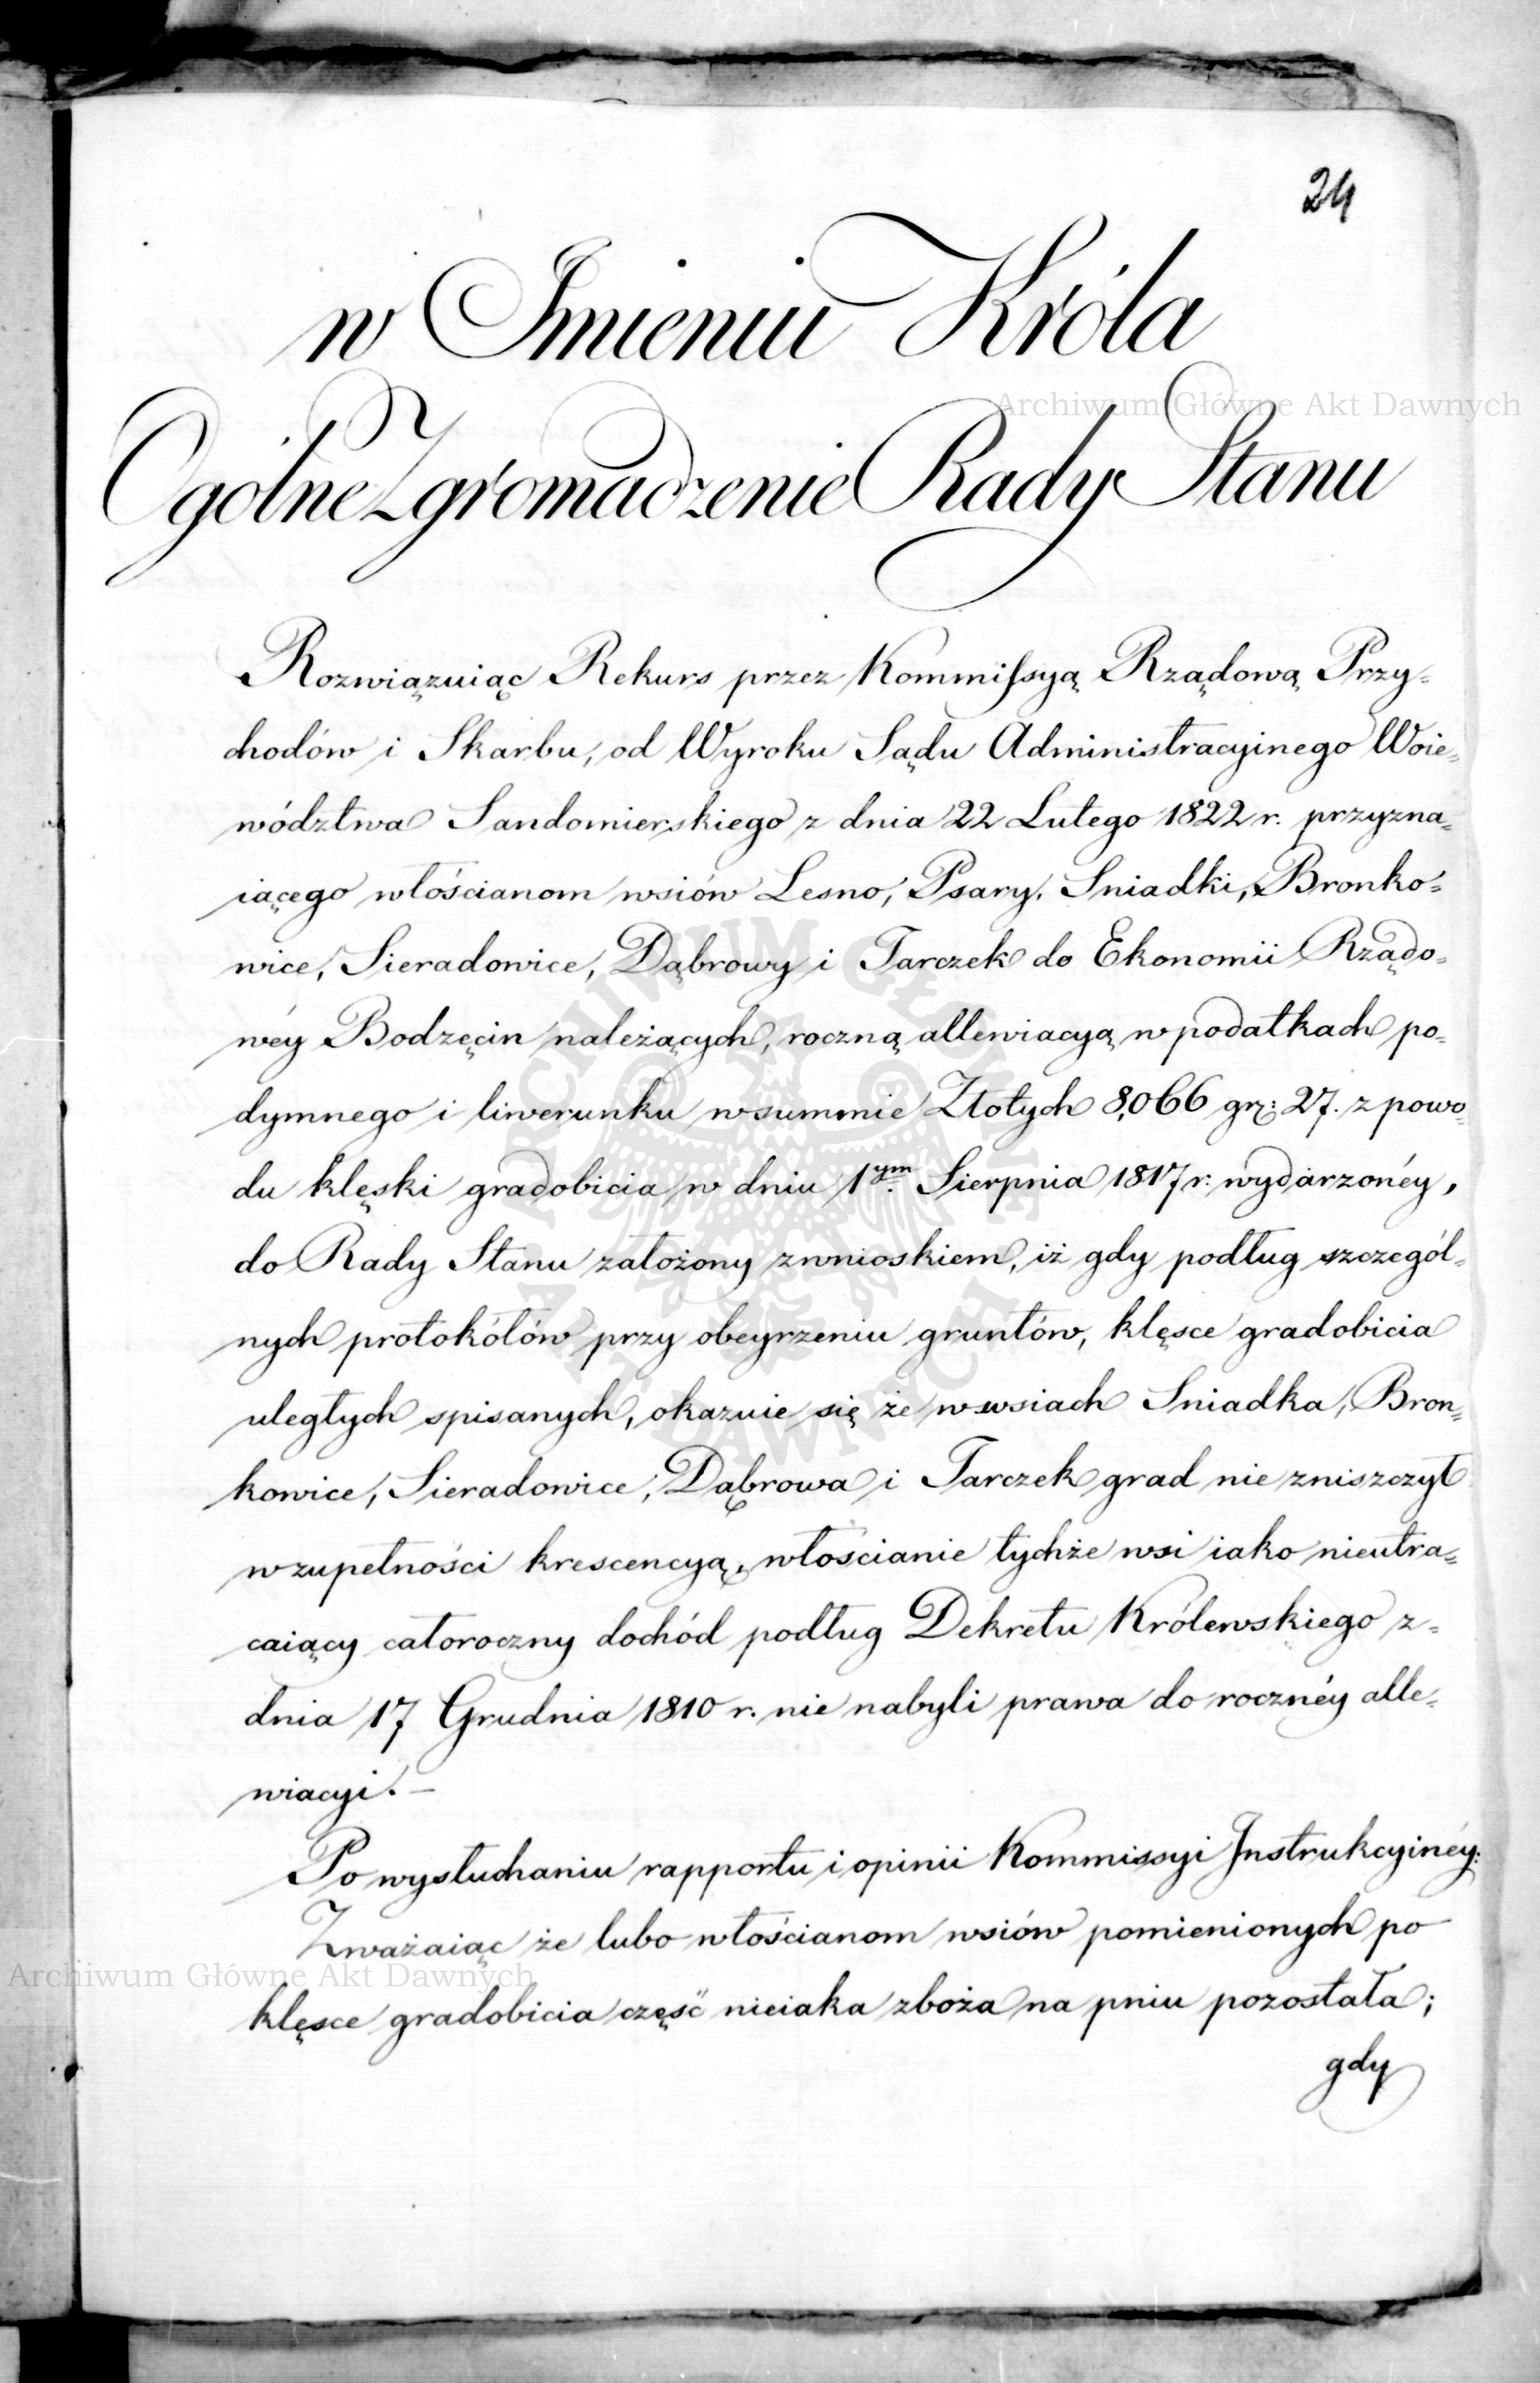 24
w Imieniu Króla
Archiwum Główne Akt Dawnych
Ogólne Zgromadzenie Rady Stanu
Rozwiązuiąc Rekurs przez Kommissyą Rządową Przy-
chodów i Skarbu, od Wyroku Sądu Administracyinego Woie-
wództwa Sandomierskiego z dnia 22 Lutego 1822 r. przyzna-
iącego włościanom wsiów Lesno, Psary, Sniadki, Bronko-
wice, Sieradowice, Dąbrowy i Tarczek do Ekonomii Rządo-
wéy Bodzęcin należących, roczną allewiacyą w podatkach po-
dymnego i liwerunku w summie Złotych 8,066 gr: 27. z powo-
du klęski gradobicia w dniu 1ym Sierpnia 1817 r. wydarzonéy,
do Rady Stanu założony z wnioskiem, iż gdy podług szczegól-
nych protokółów przy obeyrzeniu gruntów, klęsce gradobicia
uległych spisanych, okazuie się że w wsiach Sniadka, Bron-
kowice, Sieradowice, Dąbrowa i Tarczek grad nie zniszczył
w zupełności krescencyą, włościanie tychże wsi iako nieutra-
caiący całoroczny dochód podług Dekretu Królewskiego z-
dnia 17 Grudnia 1810 r. nie nabyli prawa do rocznéy alle-
wiacyi. –
Po wysłuchaniu rapportu i opinii Kommissyi Instrukcyinéy:
Zważaiąc że lubo włościanom wsiów pomienionych po
Archiwum Główne Akt Dawnych
klęsce gradobicia część nieiaka zboża na pniu pozostała;
gdy
ARCHIWUM GŁÓWNE AKT DAWNYCH